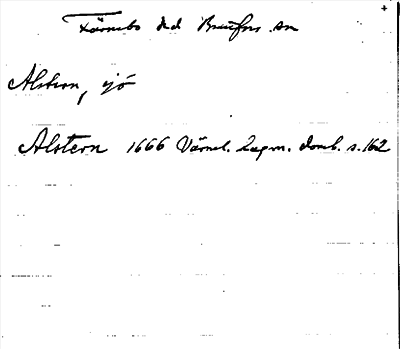 Färnebo hd Brattfors sn
Alstern, sjö
Alstern 1666 Värml. Lagm. domb. s. 162